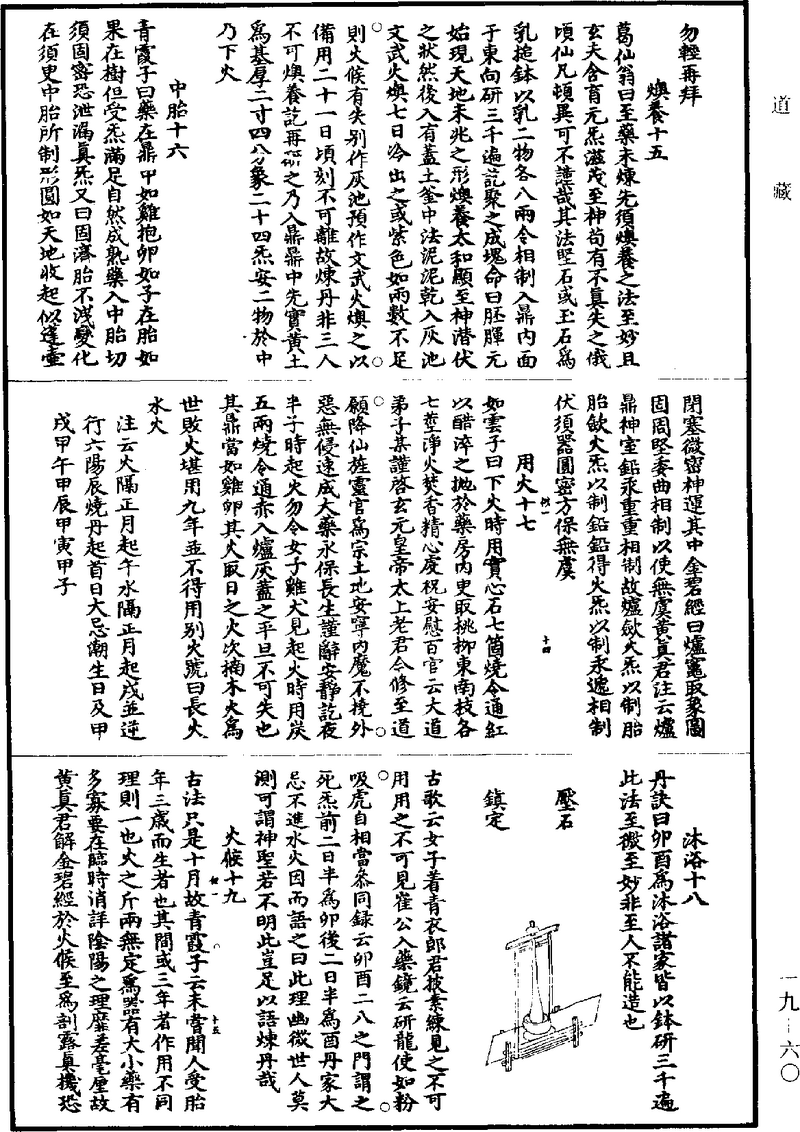 道藏
一九—六〇
勿輕再拜
煥養十五
葛仙翁曰至藥未煉先須煥養之法至妙且
玄夫含育元炁滋茂至神苟有不真失之俄
頃仙凡頓異可不謹哉其法堅石或玉石為
乳搥鉢以乳二物各八兩令相制入鼎內面
于東向研三千遍訖聚之成塊命曰胚腪元
始現天地未兆之形煥養太和顯至神潛伏
之狀然後入有蓋土釜中法泥泥乾入灰池
文武火煥七日冷出之或紫色如兩數不足
則火候有失別作灰池預作文武火煥之以
備用二十一日頃刻不可離故煉丹非三人
不可煥養訖再研之乃入鼎鼎中先實黃土
為基厚二寸四八分象二十四炁安二物於中
乃下火
中胎十六
青霞子曰藥在鼎中如雞抱卵如子在胎如
果在樹但受炁滿足自然成熟藥入中胎切
須固密恐泄漏真炁又曰固濟胎不洩變化
在須臾中胎所制形圓如天地收起似蓬壺
閉塞微密神運其中金碧經曰爐竈取象圓
固周堅委曲相制以使無虞黃真君注云爐
鼎神室鉛汞重重相制故爐歛火炁以制胎
胎歛火炁以制鉛鉛得火炁以制汞遞相制
伏須器圓密方保無虞
用火十七
如雲子曰下火時用實心石七箇燒令通紅
以醋淬之拋於藥房內更取桃柳東南枝各
七莖淨火焚香精心虔祝安慰百官云大道
弟子某謹啓玄元皇帝太上老君今修至道
願降仙旌靈官為宗土地安寧內魔不撓外
惡無侵速成大藥永保長生謹辭安靜訖夜
半子時起火勿令女子雞犬見起火時用炭
五兩燒令通赤入爐灰蓋之平旦不可失也
其鼎當如雞卵其火取日之火次摘木火為
世敗火堪用九年並不得用别火號曰長火
水火
注云火隔正月起午水隔正月起戌並逆
行六陽辰燒丹起首日大忌潮生日及甲
戌甲午甲辰甲寅甲子
沐浴十八
丹訣曰卯酉為沐浴諸家皆以鉢研三千遍
此法至微至妙非至人不能造也
壓石
鎮定
古歌云女子着青衣郎君披素練見之不可
用用之不可見崔公入藥鏡云研龍使如粉
吸虎自相當叅同録云卯酉二八之門謂之
死炁前二日半為卯後二日半為酉丹家大
忌不進水火因而語之曰此理幽微世人莫
測可謂神聖若不明此豈足以語煉丹哉
火候十九
古法只是十月故青霞子云未嘗聞人受胎
年三歲而生者也其間或三年者作用不同
理則一也火之斤兩無定為器有大小藥有
多寡要在臨時消詳陰陽之理靡差毫厘故
黃真君解金碧經於火候至為剖露真機恐